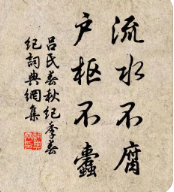 流水不腐
户枢不蠹
吕氏春秋纪季春
纪词典網集